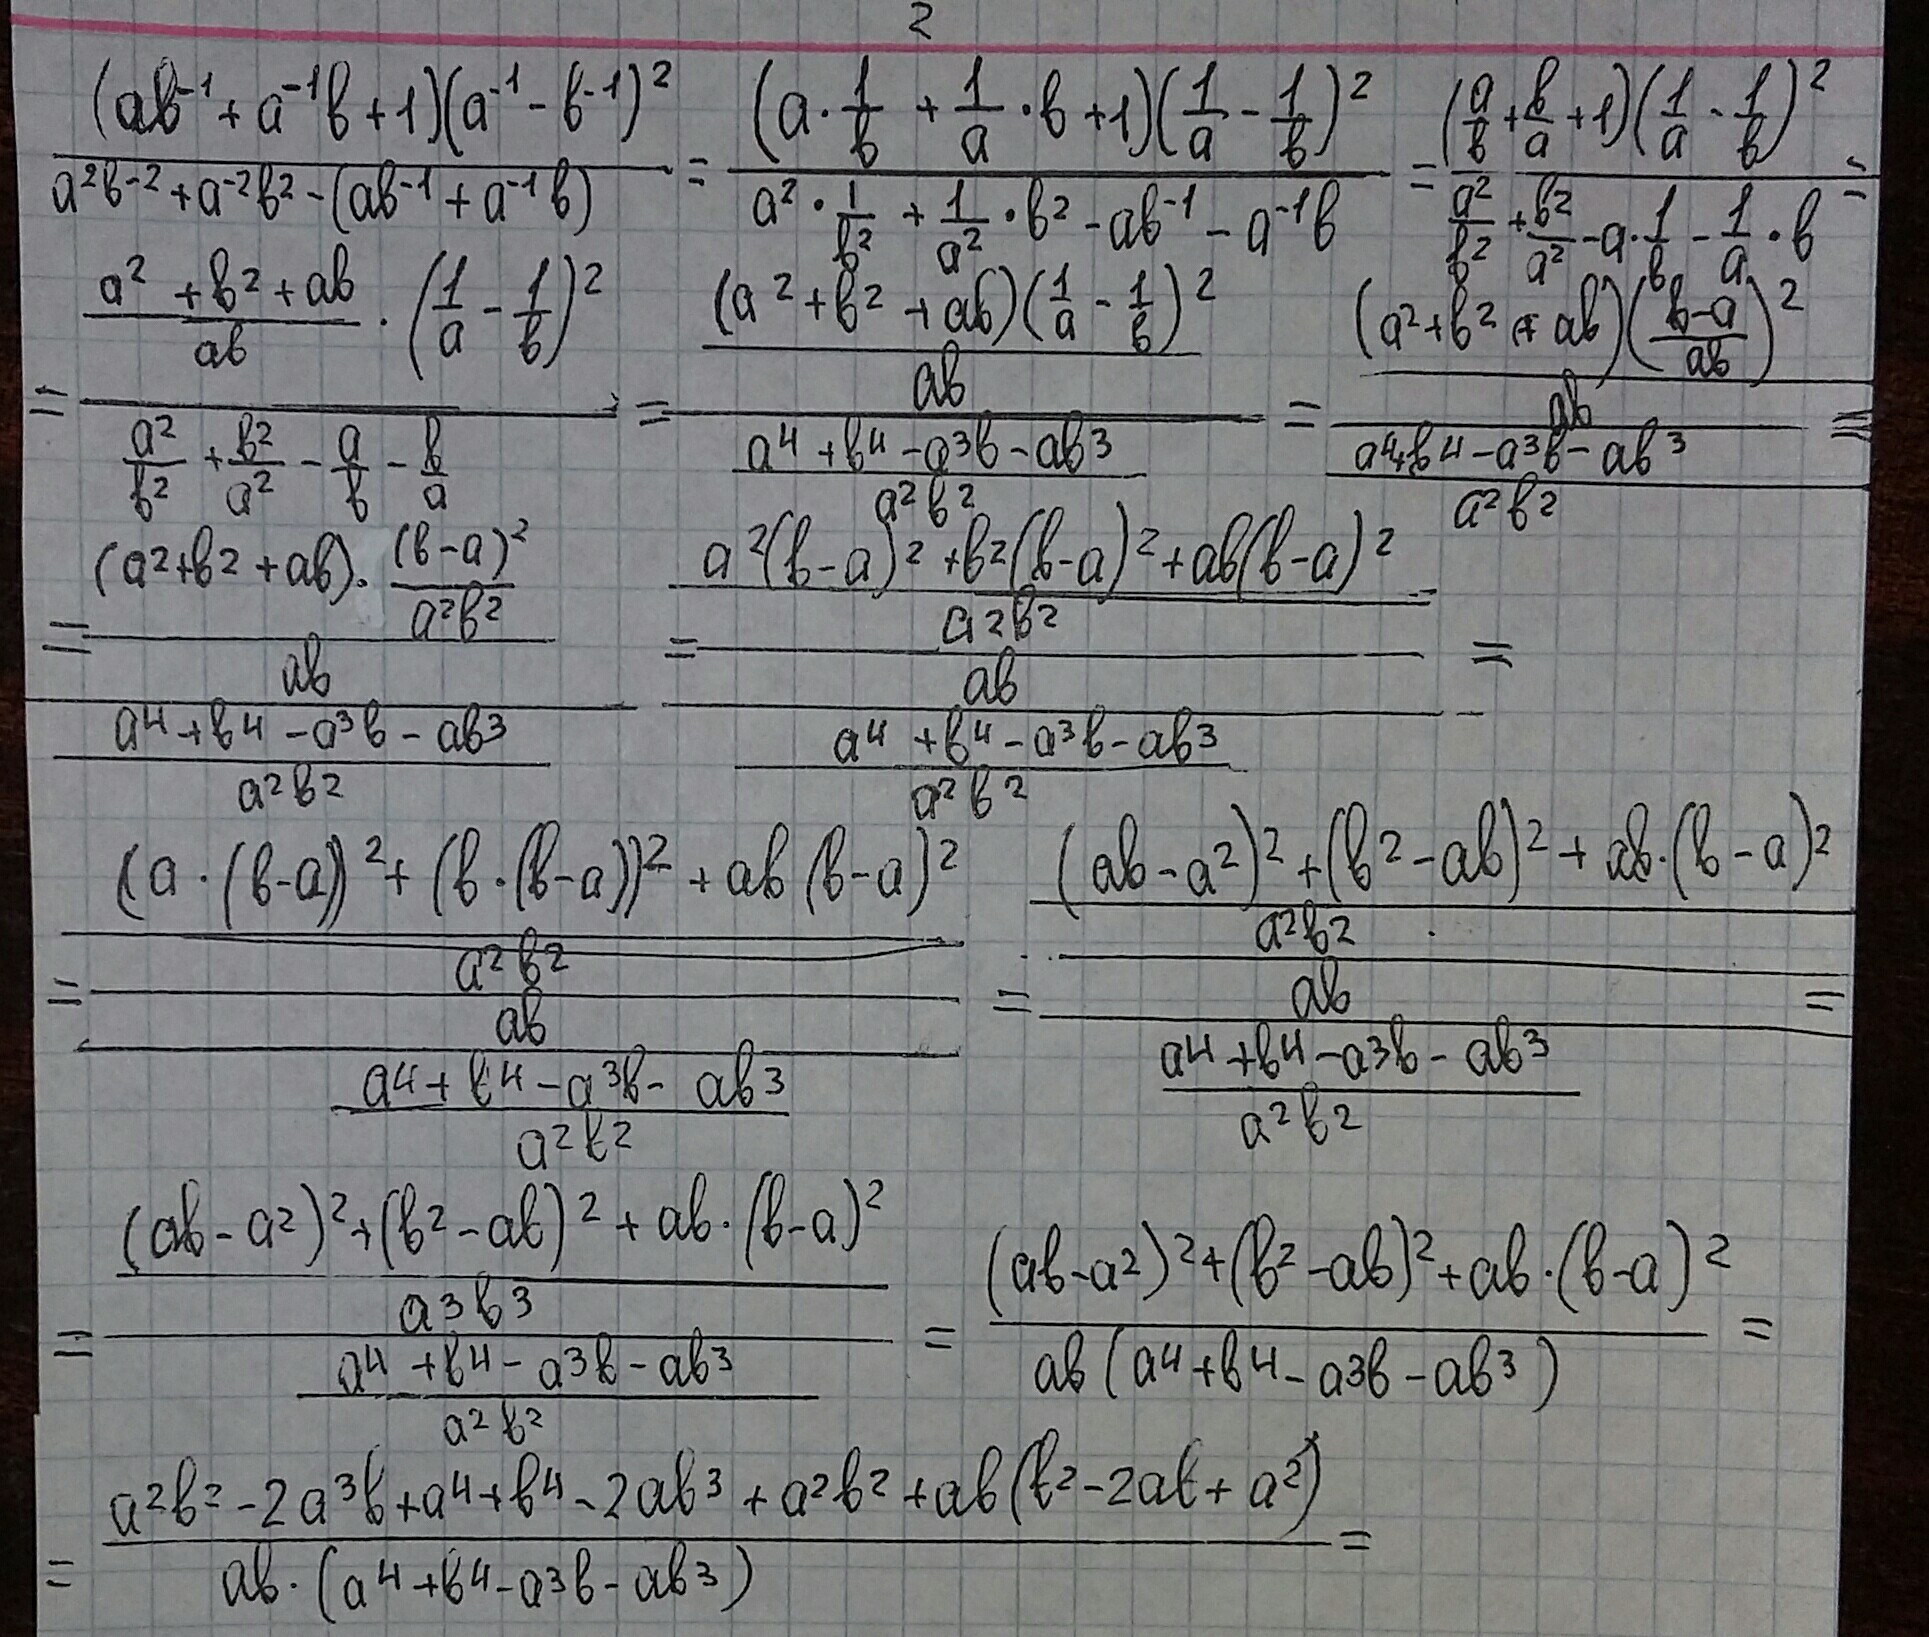 2
((ab⁻¹ + a⁻¹b + 1)(a⁻¹ - b⁻¹)²)/(a²b⁻² + a⁻²b² - (ab⁻¹ + a⁻¹b)) = ((a · 1/b + 1/a · b + 1)(1/a - 1/b)²)/(a² · 1/b² + 1/a² · b² - ab⁻¹ - a⁻¹b) = ((a/b + b/a + 1)(1/a - 1/b)²)/(a²/b² + b²/a² - a · 1/b - 1/a · b) =
= ((a² + b² + ab)/ab · (1/a - 1/b)²)/(a²/b² + b²/a² - a/b - b/a) = (((a² + b² + ab)(1/a - 1/b)²)/ab)/((a⁴ + b⁴ - a³b - ab³)/a²b²) = (((a² + b² + ab)((b-a)/ab)²)/ab)/((a⁴ + b⁴ - a³b - ab³)/a²b²) =
= (((a² + b² + ab) · (b-a)²/a²b²)/ab)/((a⁴ + b⁴ - a³b - ab³)/a²b²) = (((a²(b-a)² + b²(b-a)² + ab(b-a)²)/a²b²)/ab)/((a⁴ + b⁴ - a³b - ab³)/a²b²) =
= ((((a · (b-a))² + (b · (b-a))² + ab(b-a)²)/a²b²)/ab)/((a⁴ + b⁴ - a³b - ab³)/a²b²) = ((((ab - a²)² + (b² - ab)² + ab · (b - a)²)/a²b²)/ab)/((a⁴ + b⁴ - a³b - ab³)/a²b²) =
= (((ab - a²)² + (b² - ab)² + ab · (b-a)²)/a³b³)/((a⁴ + b⁴ - a³b - ab³)/a²b²) = ((ab - a²)² + (b² - ab)² + ab · (b-a)²)/(ab(a⁴ + b⁴ - a³b - ab³)) =
= (a²b² - 2a³b + a⁴ + b⁴ - 2ab³ + a²b² + ab(b² - 2ab + a²))/(ab · (a⁴ + b⁴ - a³b - ab³)) =